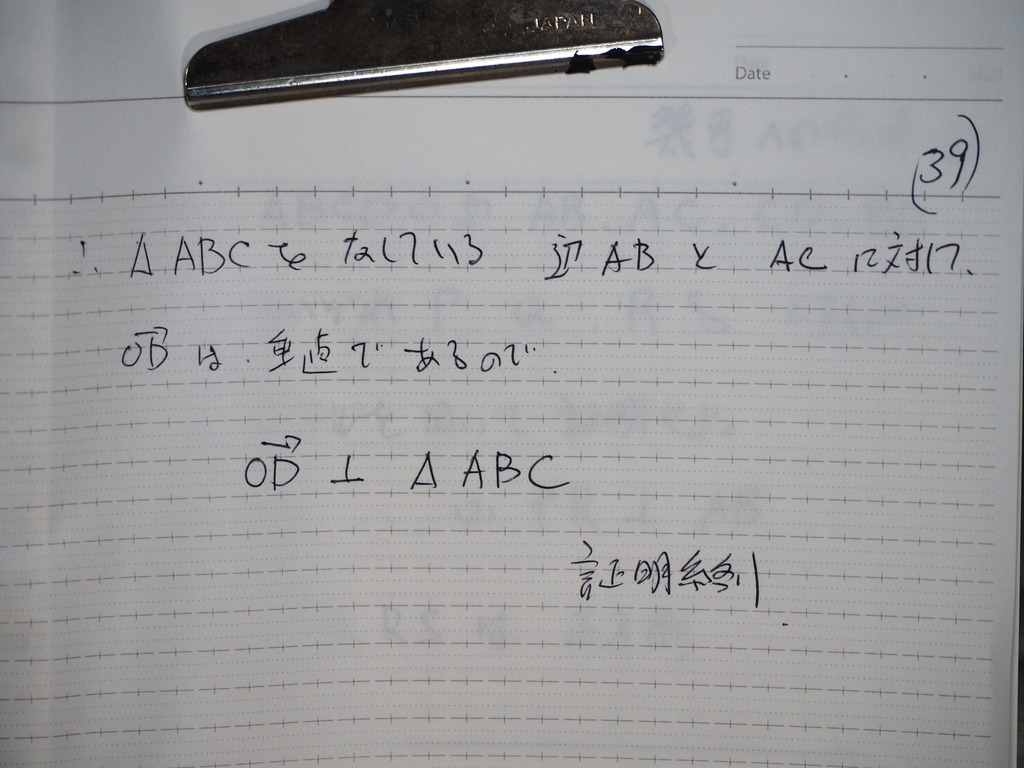 JAPAN
Date
(39)
∴ △ABCを なしている 辺 AB と AC に対して、
→OD は、垂直で あるので、
→OD ⊥ △ABC
証明終り